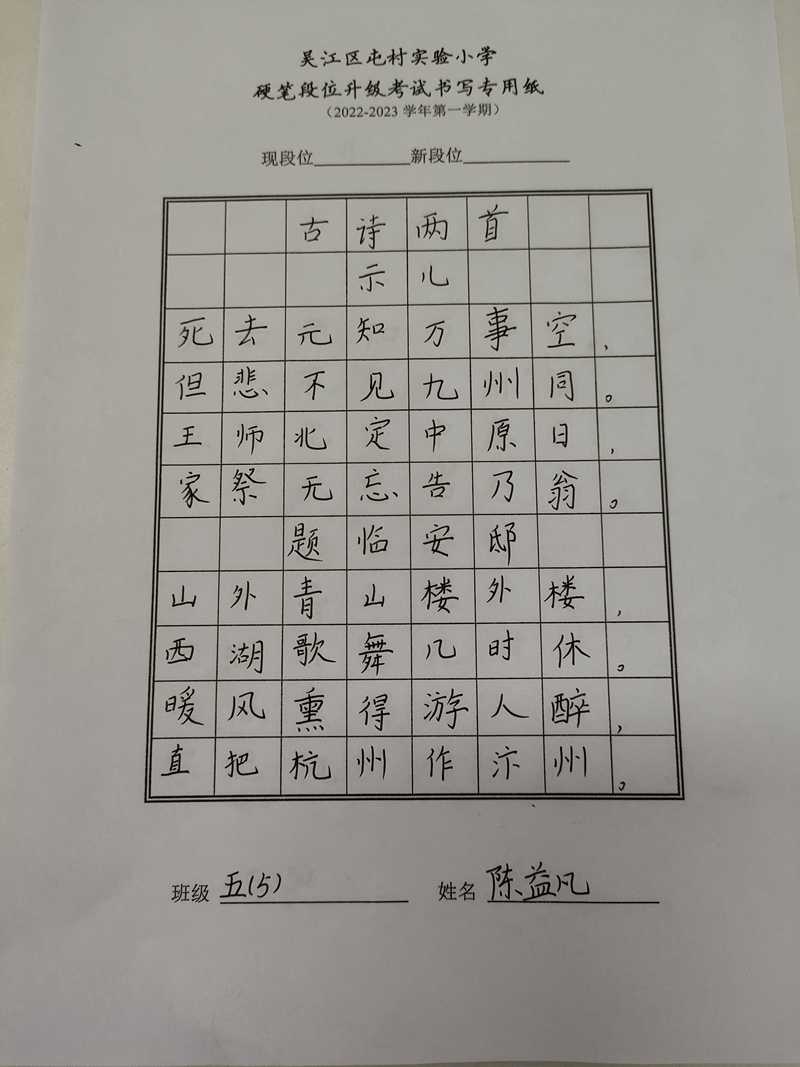 吴江区屯村实验小学
硬笔段位升级考试书写专用纸
（2022-2023 学年第一学期）
现段位__________新段位__________
古诗两首
示儿
死去元知万事空，
但悲不见九州同。
王师北定中原日，
家祭无忘告乃翁。
题临安邸
山外青山楼外楼，
西湖歌舞几时休。
暖风熏得游人醉，
直把杭州作汴州。
班级 五(5) 姓名 陈益凡